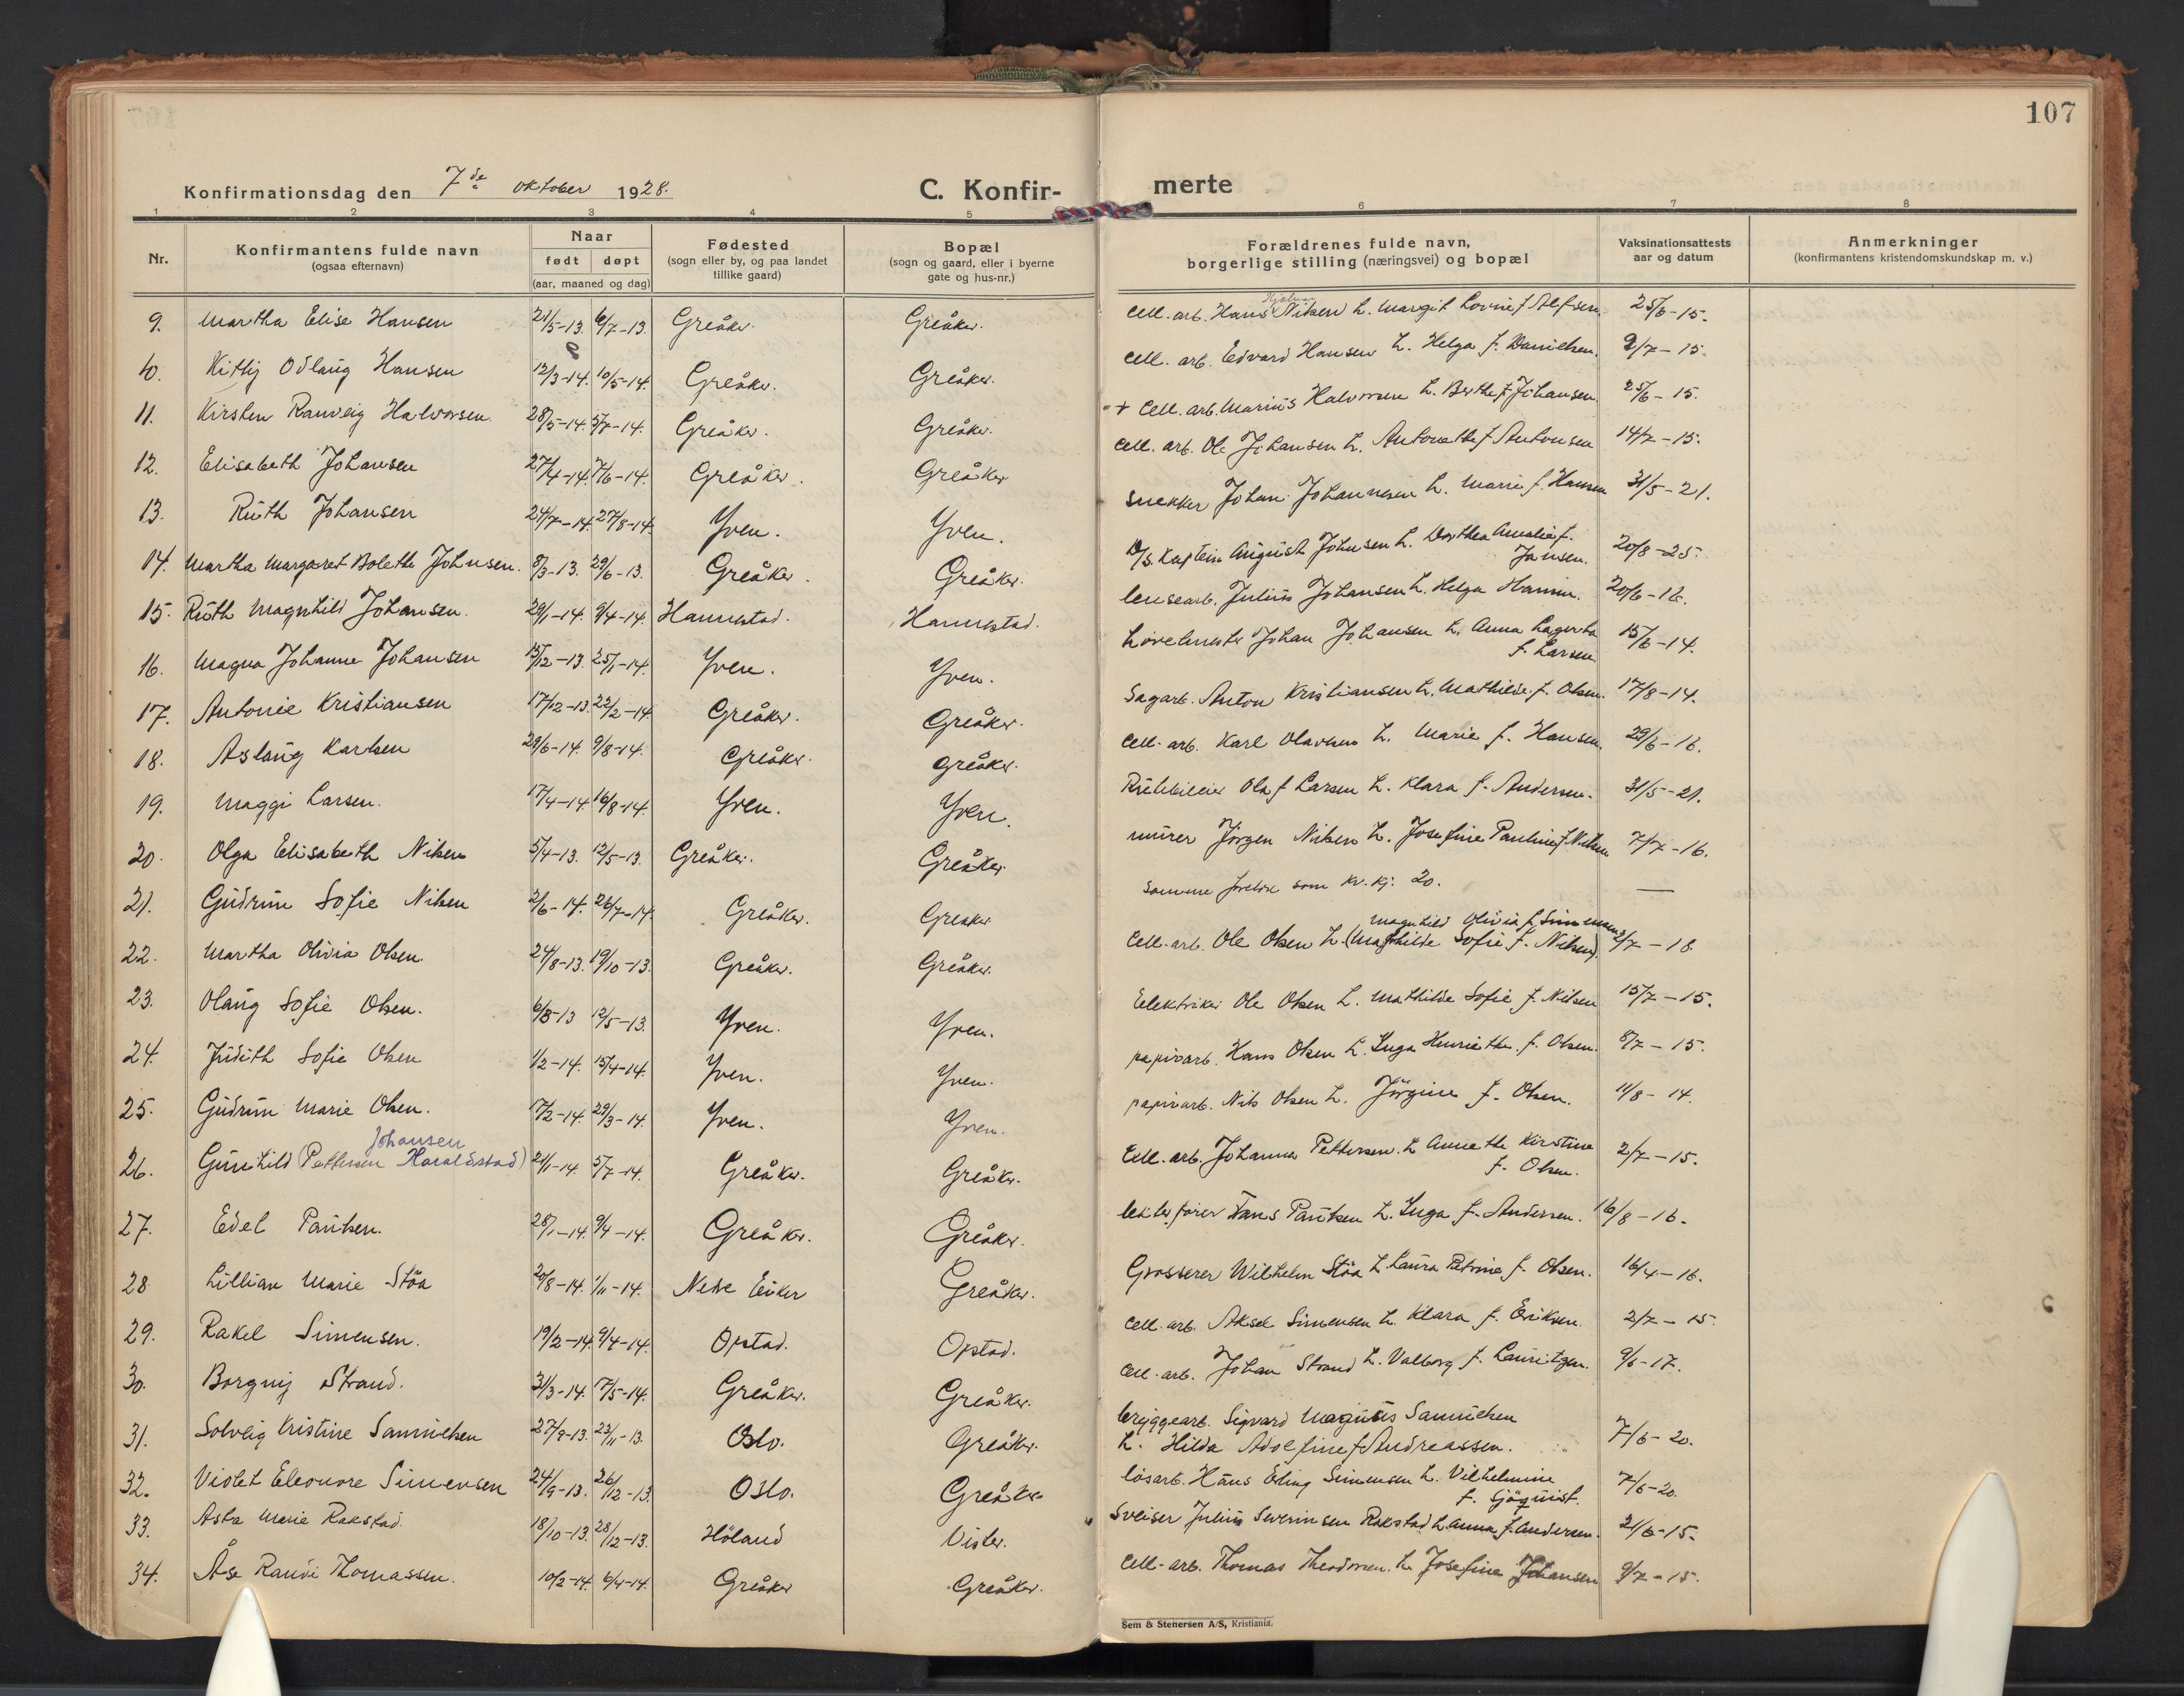 107
Konfirmationsdag den 7de oktober 1928.
C. Konfir- merte
1 2 3 4 5 6 7 8
Nr.
Konfirmantens fulde navn
(ogsaa efternavn)
Naar
født døpt
(aar, maaned og dag)
Fødested
(sogn eller by, og paa landet
tillike gaard)
Bopæl
(sogn og gaard, eller i byerne
gate og hus-nr.)
Forældrenes fulde navn,
borgerlige stilling (næringsvei) og bopæl
Vaksinationsattests
aar og datum
Anmerkninger
(konfirmantens kristendomskundskap m. v.)
9. Martha Elise Hansen 21/5-13. 6/7-13. Greåker. Greåker. Cell. arb. Hans Hjalmar Nilsen h. Margit Lovise f. Alfsen. 25/6-15.
10. Kitty Odlaug Hansen 12/3-14. 10/5-14. Greåker. Greåker. Cell. arb. Edvard Hansen h. Helga f. Danielsen. 2/7-15.
11. Kirsten Ranveig Halvorsen. 28/5-14. 5/7-14. Greåker. Greåker. + Cell. arb. Marius Halvorsen h. Berthe f. Johansen. 25/6-15.
12. Elisabeth Johansen 27/4-14. 7/6-14. Greåker. Greåker Cell. arb. Ole Johansen h. Antonette f. Antonsen 14/7-15.
13. Ruth Johansen 24/7-14. 27/8-14. Yven. Yven. Snekker Johan Johannesen h. Marie f. Hansen 31/5-21.
14. Martha Margaret Bolette Johnsen. 8/3-13. 29/6-13. Greåker. Greåker. D/S. Kaptein August Johnsen h. Dorthea Amalie f.
Jansen. 20/8-25.
15. Ruth Magnhild Johansen. 29/1-14. 9/4-14. Hannestad. Hannestad. lensearb. Julius Johansen h. Helga 20/6-16.
16. Magna Johanne Johansen 15/12-13. 25/1-14. Yven. Yven. Johan Johansen h. Anna Lagertha
f. Larsen. 15/6-14.
17. Antonie Kristiansen 17/12-13. 22/2-14. Greåker. Greåker. Sagarb. Anton Kristiansen h. Mathilde f. Olsen. 17/8-14.
18. Aslaug Karlsen 29/6-14. 9/8-14. Greåker. Greåker. Cell. arb. Karl Olavsen h. Marie f. Hansen. 29/6-16.
19. Maggi Larsen. 17/4-14. 16/8-14. Yven. Yven. Rutebileier Olaf Larsen h. Klara f. Andersen. 31/5-21.
20. Olga Elisabeth Nilsen 5/4-13. 12/5-13. Greåker. Greåker. murer Jörgen Nilsen h. Josefine Pauline f. Nilsen 7/7-16.
21. Gudrun Sofie Nilsen 2/6-14. 26/7-14. Greåker. Greåker samme foreldre som kv. kj. 20. —
22. Martha Olivia Olsen. 24/8-13. 19/10-13. Greåker. Greåker. Cell. arb. Ole Olsen h. (Mathilde Sofie f. Nilsen) Magnhild Olivia f. Simensen 2/7-18.
23. Olaug Sofie Olsen. 6/8-13 12/5-13. Yven. Yven. Eelektriker Ole Olsen h. Mathilde Sofie f. Nilsen 15/7-15.
24. Judith Sofie Olsen 1/2-14. 13/4-14. Yven. Yven. papirarb. Hans Olsen h. Inga Henriette f. Olsen. 8/7-15.
25. Gudrun Marie Olsen. 17/2-14. 29/3-14. Yven. Yven. papirarb. Nils Olsen h. Jörgine f. Olsen. 11/8-14.
26. Gunhild (Pettersen Haraldstad) Johansen 24/1-14. 5/7-14. Greåker. Greåker. Cell. arb. Johannes Pettersen h. Annethe Kirstine
f. Olsen. 2/7-15.
27. Edel Paulsen. 28/1-14. 9/4-14. Greåker. Greåker. lekterfører Hans Paulsen h. Inga f. Andersen. 16/8-16.
28 Lillian Marie Støa 20/8-14. 1/11-14. Nedre Eiker Greåker. Grosserer Wilhelm Støa h. Laura Petrine f. Olsen. 16/4-16.
29. Rakel Simensen. 19/2-14. 9/4-14. Opstad. Opstad. Cell. arb. Aksel Simensen h. Klara f. Eriksen. 2/7-15.
30. Borgny Strand. 31/3-14. 17/5-14. Greåker. Greåker. Cell. arb. Johan Strand h. Valborg f. Lauritzen. 9/6-17.
31. Solveig Kristine Samuelsen 27/9-13. 23/11-13. Oslo. Greåker. bryggearb. Sigvard Magnus Samuelsen
h. Hilda Adolfine f. Andreassen. 7/6-20.
32. Violet Eleonore Simensen 24/9-13. 26/12-13. Oslo. Greåker. løsarb. Hans Erling Simensen h. Vilhelmine
f. Sjöquist. 7/6-20.
33. Asta Marie Rakstad. 18/10-13. 28/12-13. Höland Vister. Sveiser Julius Severinsen Rakstad h. Anna f. Andersen. 21/6-15.
34. Åse Randi Thomassen. 10/2-14. 6/4-14. Greåker Greåker. Cell. arb. Thomas Theodorsen. h. Josefine Johansen 9/7-15.
Sem & Stenersen A/S, Kristiania.